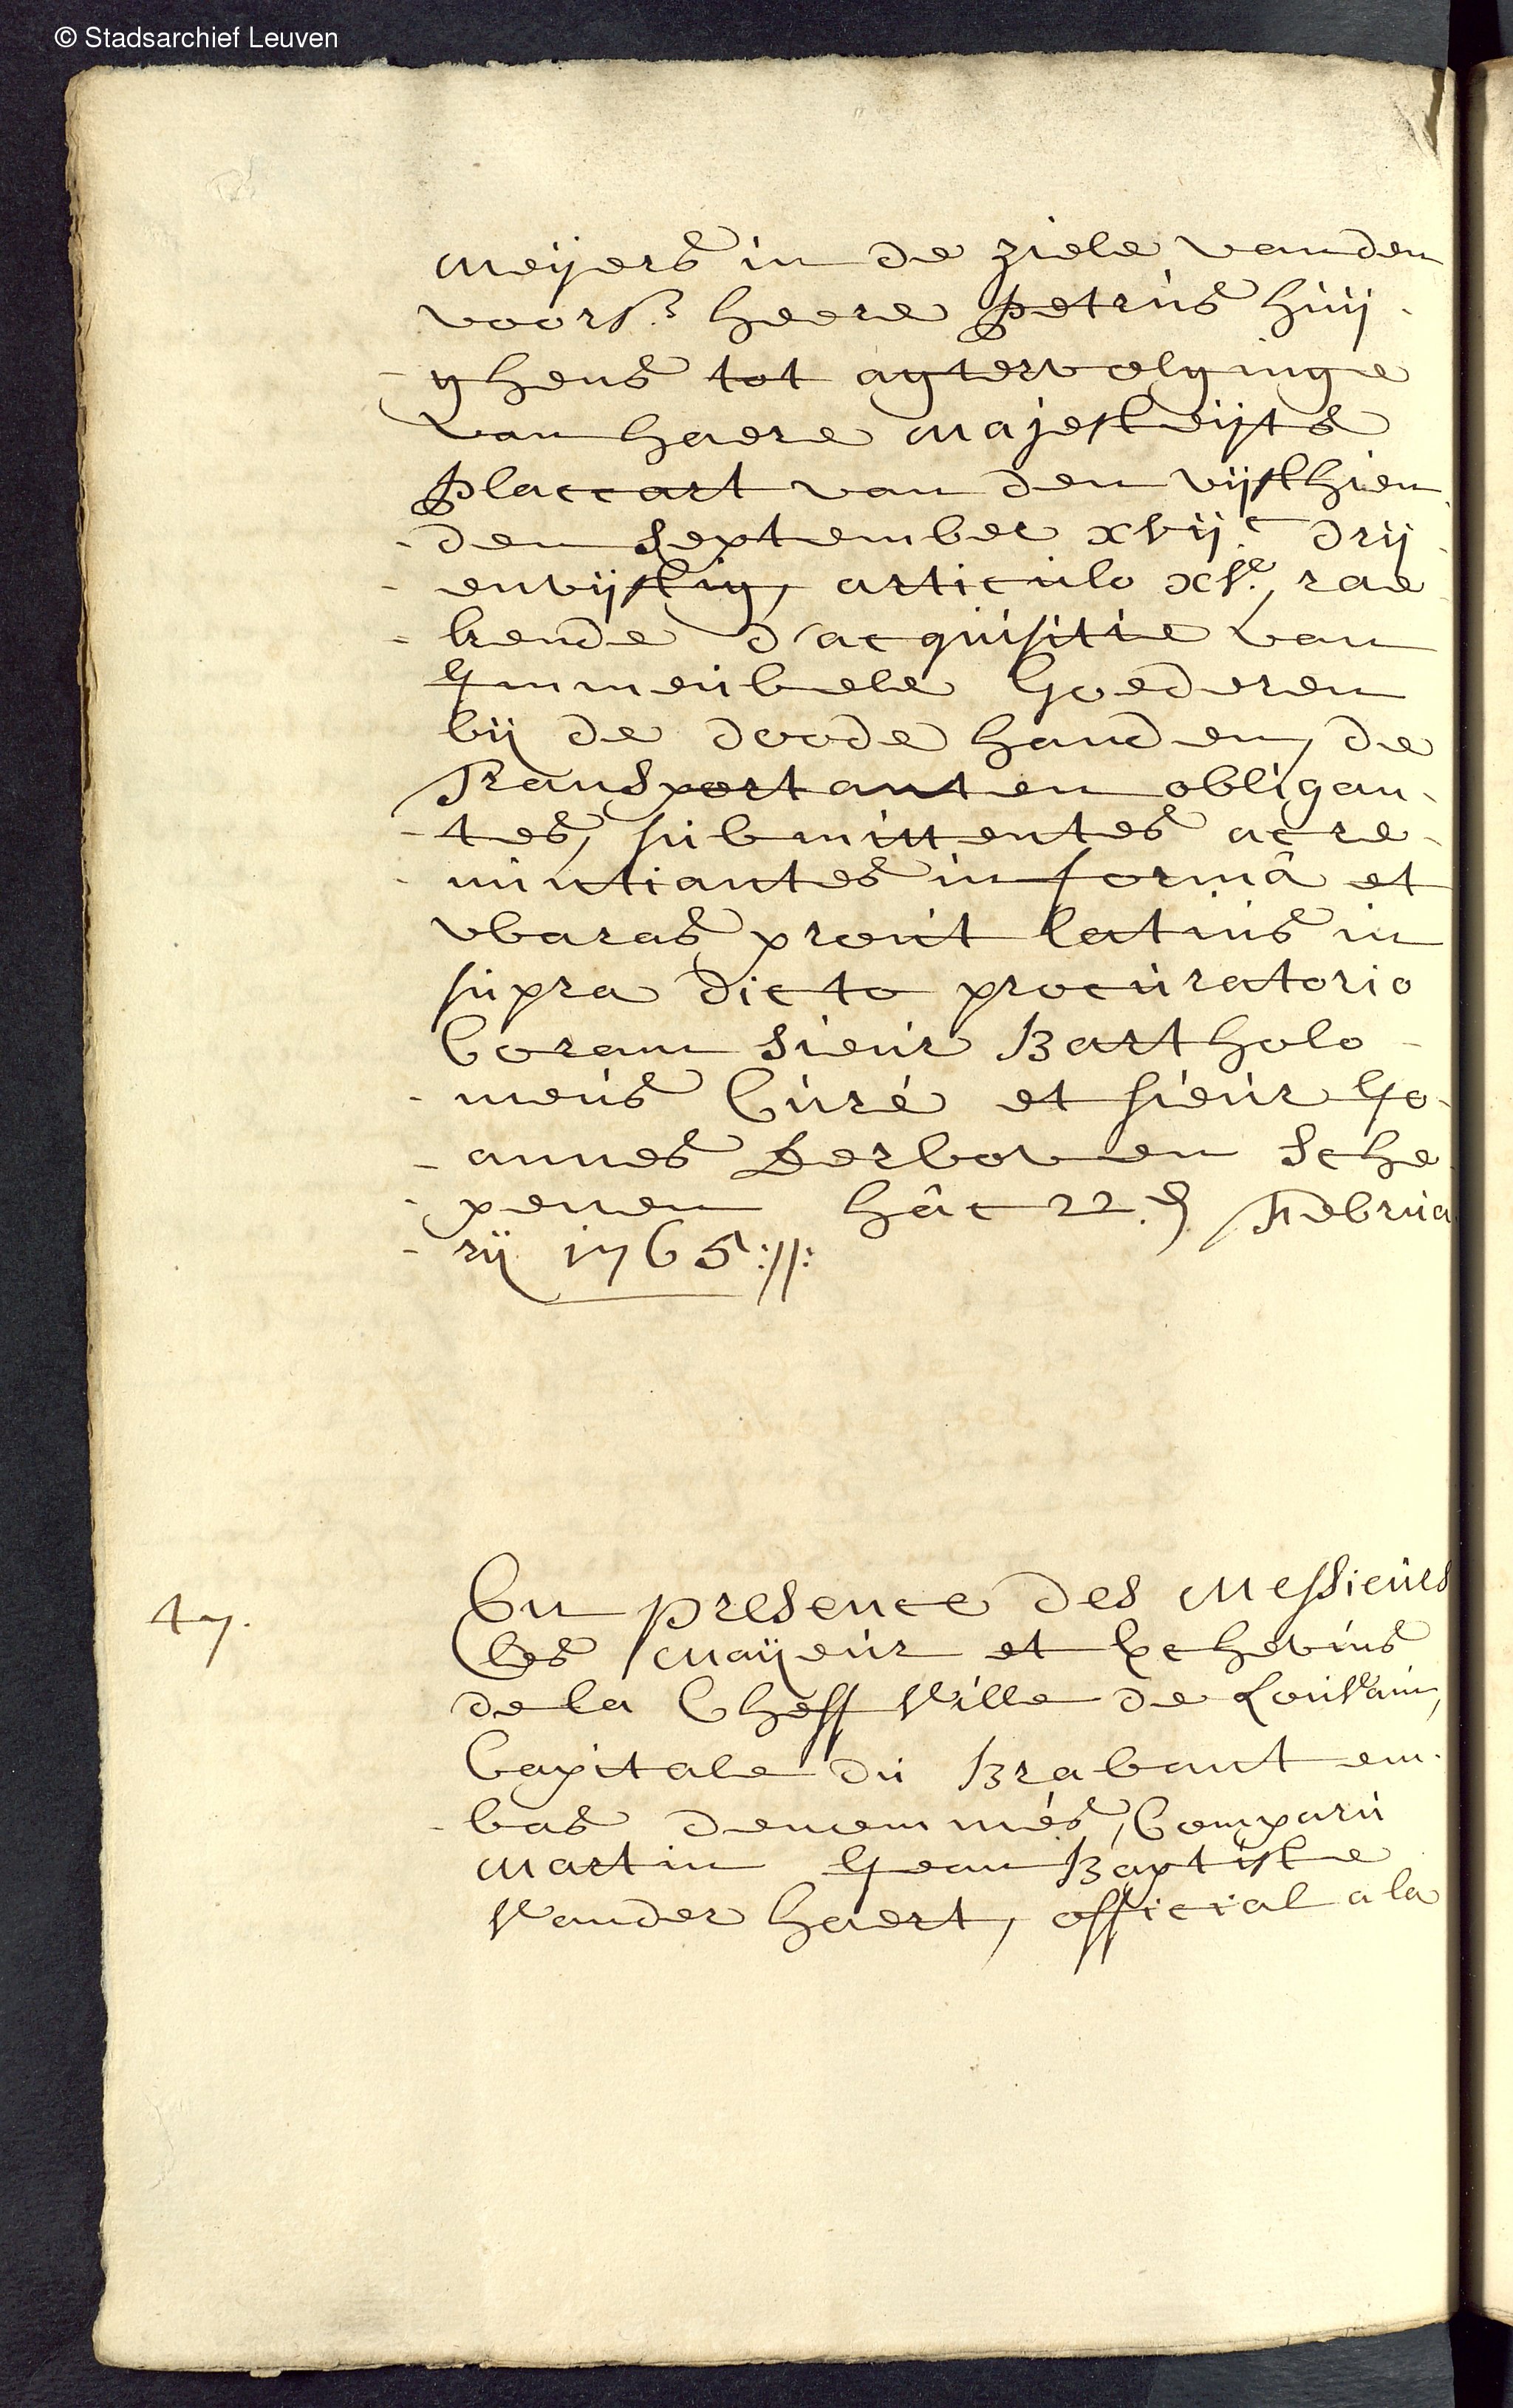 © Stadsarchief Leuven
meijers in de ziele vanden
voors. heere Petrus huij
-ghens tot agtervolginge
van haere majesteijts
Placcaert van den vijfthien
-den september xvijc drij
-envijftig, articulo xv.e, rae
-kende d'acquisitie van
Immeubele Goederen
bij de doode handen, de
Transportanten obligan-
-tes, submittentes ac re-
-nuntiantes in formâ et
waras prout latius in
supra dicto procuratorio
Coram sieur Bartholo-
-meus Curé et sieur Jo-
-annes Derboven Sche
-penen hâc 22. Februa
-rij 1765 ://:
47.
En presence des Messieurs
les Maijeur et Echevins
de la Cheff Ville de Louvain,
Capitale du Brabant em-
-bas denommés, Comparu
Martin Jean Baptiste
Vander haert, official a la